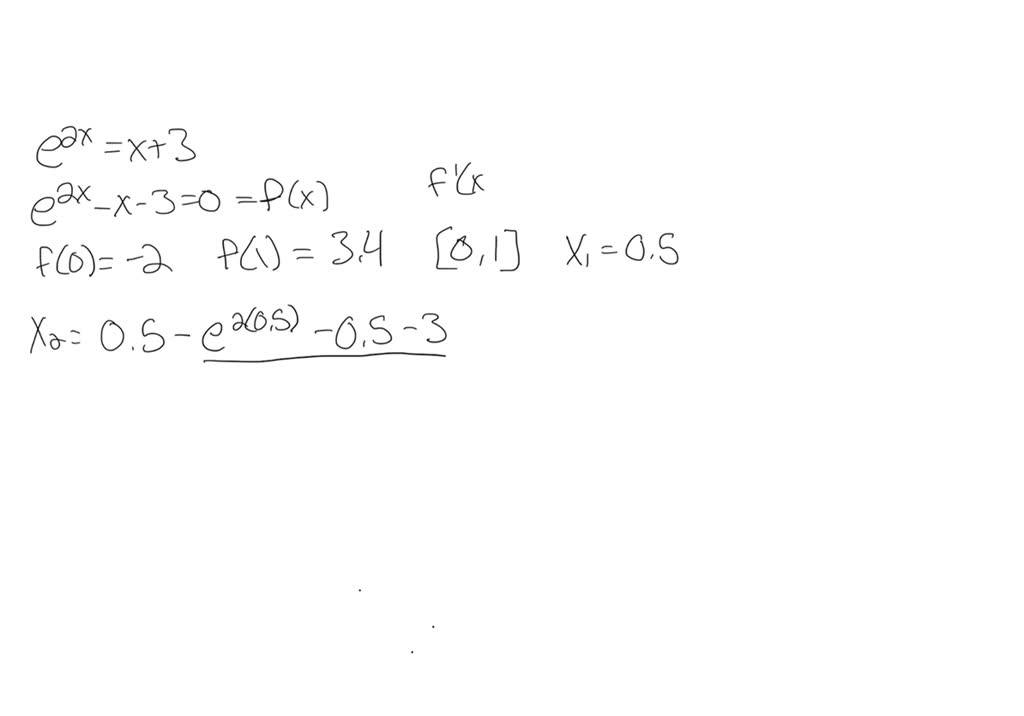 e^{2x} = x+3
e^{2x} - x - 3 = 0 = f(x) f'(x
f(0) = -2 f(1) = 3.4 [0,1] x₁ = 0.5
x₂ = 0.5 - e^{2(0.5)} - 0.5 - 3